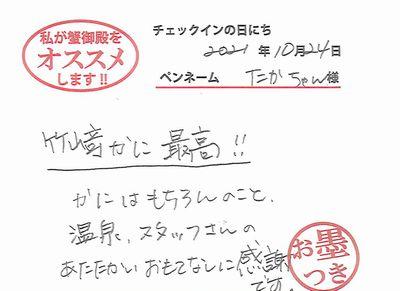 私が蟹御殿を
オススメ
します!!
チェックインの日にち
2021 年 10月24日
ペンネーム たかちゃん様
竹崎かに 最高!!
かにはもちろんのこと、
温泉、スタッフさんの
あたたかいおもてなしに感謝
です。
お墨
つき